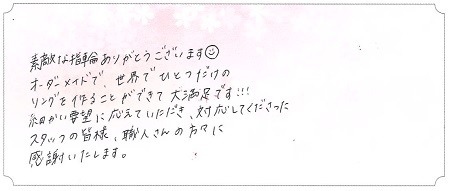 素敵な指輪ありがとうございます☺
オーダーメイドで、世界でひとつだけの
リングを作ることができて大満足です!!!
細かい要望に応えていただき、対応してくださった
スタッフの皆様、職人さんの方々に
感謝いたします。